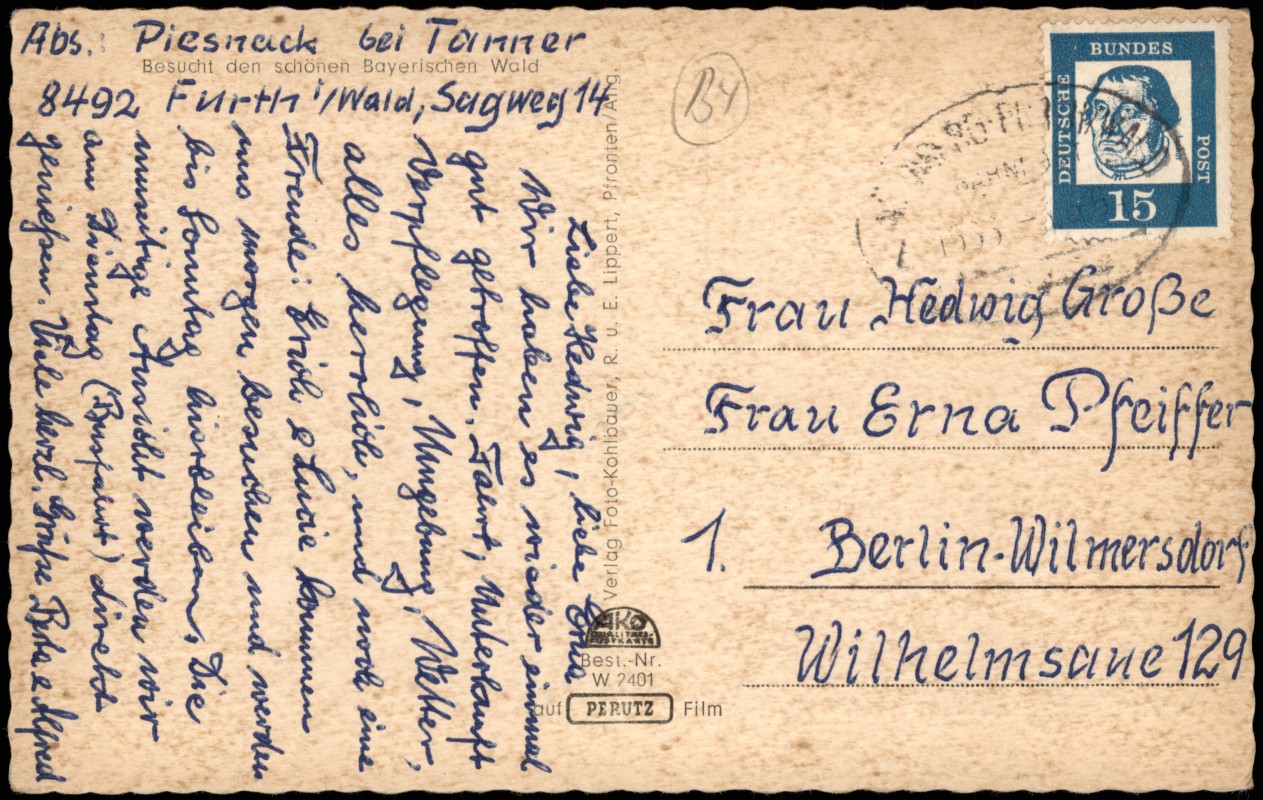 Abs.: Piesnack bei Tanner
Besucht den schönen Bayerischen Wald
8492 Furth i/Wald, Sagweg 14
Liebe Hedwig, liebe Erna
Wir haben es wieder einmal
gut getroffen. Fahrt, Unterkunft
Verpflegung, Umgebung, Wetter,
alles herrlich, und noch eine
Freude: Erich & Lucie kommen
uns morgen besuchen und werden
bis Sonntag hierbleiben. Die
einmalige Aussicht werden wir
am Dienstag (Busfahrt) direkt
genießen. Viele herzl. Grüße Beta & Alfred
Verlag Foto-Kohlbauer, R. u. E. Lippert, Pfronten/Allg.
AKO
QUALITÄTS-
POSTKARTE
Best.-Nr.
W 2401
auf PERUTZ Film
B4
DEUTSCHE
BUNDES
POST
15
Frau Hedwig Große
Frau Erna Pfeiffer
1. Berlin-Wilmersdorf
Wilhelmsaue 129